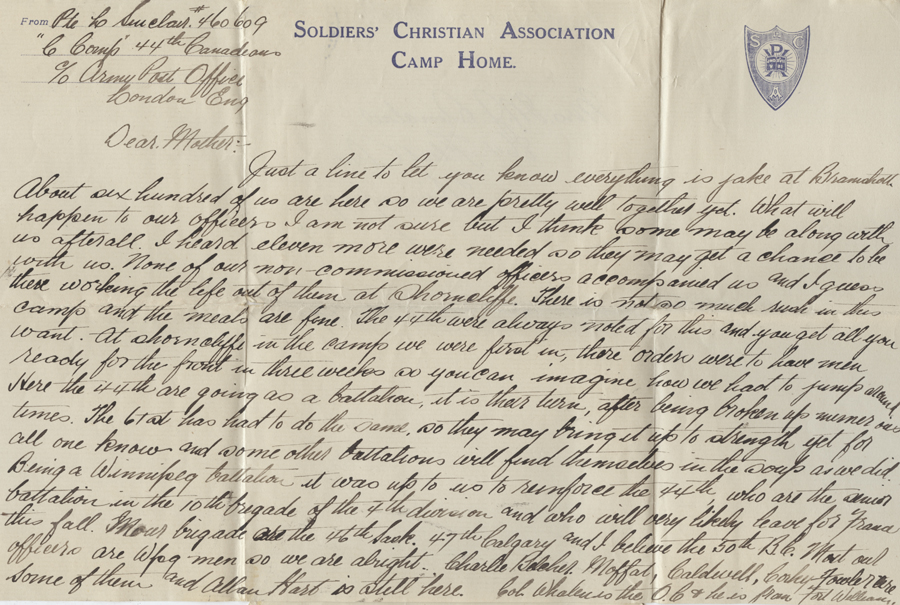 SOLDIERS' CHRISTIAN ASSOCIATION
CAMP HOME.
S C P A
From Pte L Sinclair. #460609
"C Comp" 44th Canadians
c/o Army Post Office
London Eng
Dear Mother:-
Just a line to let you know everything is jake at Bramshott
About six hundred of us are here so we are pretty well together yet. What will
happen to our officers I am not sure but I think some may be along with
us afterall. I heard eleven more were needed so they may get a chance to be
with us. None of our non-commissioned officers accompanied us and I guess
there working the life out of them at Shorncliffe. There is not so much rush in this
camp and the meals are fine. The 44th were always noted for this and you get all you
want. At Shorncliffe in the camp we were first in, there orders were to have men
ready for the front in three weeks so you can imagine how we had to jump around
Here the 44th are going as a battalion, it is their turn, after being broken up numerous
times. The 61st has had to do the same, so they may bring it up to strength yet for
all one know and some other battalions will find themselves in the soup as we did.
Being a Winnipeg battalion it was up to us to reinforce the 44th, who are the senior
battalion in the 10th brigade of the 4th division and who will very likely leave for France
this fall. In our brigade are the 46th Sask. 47th Calgary and I believe the 50th B.C. Most our
officers are Wpg men so we are alright. Charlie Moffat, Caldwell, Fowler are
some of them and Allan Hart is still here. Col. is the O.C. & he is from Fort William